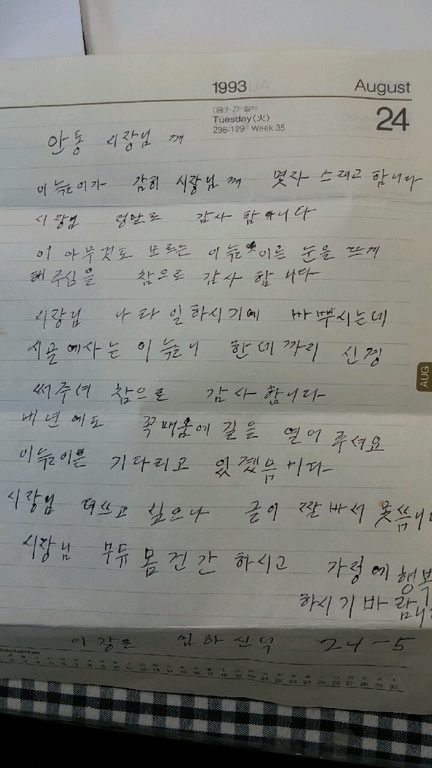 1993 August
(음7.7) 칠석
Tuesday(火) 24
236-129 Week 35
안동 시장님 께
이늙은이가 감히 시장님 께 몇자 스려고 합니다
시장님 정말로 감사 합니다
이 아무것도 모르는 이늙은이을 눈을 뜨게
해주심을 참으로 감사 합니다
시장님 나라 일하시기에 바쁘시는데
시골에사는 이 늙으니 한데까지 신경
써주셔 참으로 감사합니다
내년에도 꼭배움에 길을 열어 주셔요
이늙이는 기다리고 있겠음니다
시장님 더쓰고 싶으나 글이 짤바서 못씀니
시장님 부듸 몸건간 하시고 가정에 행복
하시기바람니
임하신덕 24-5
AUG